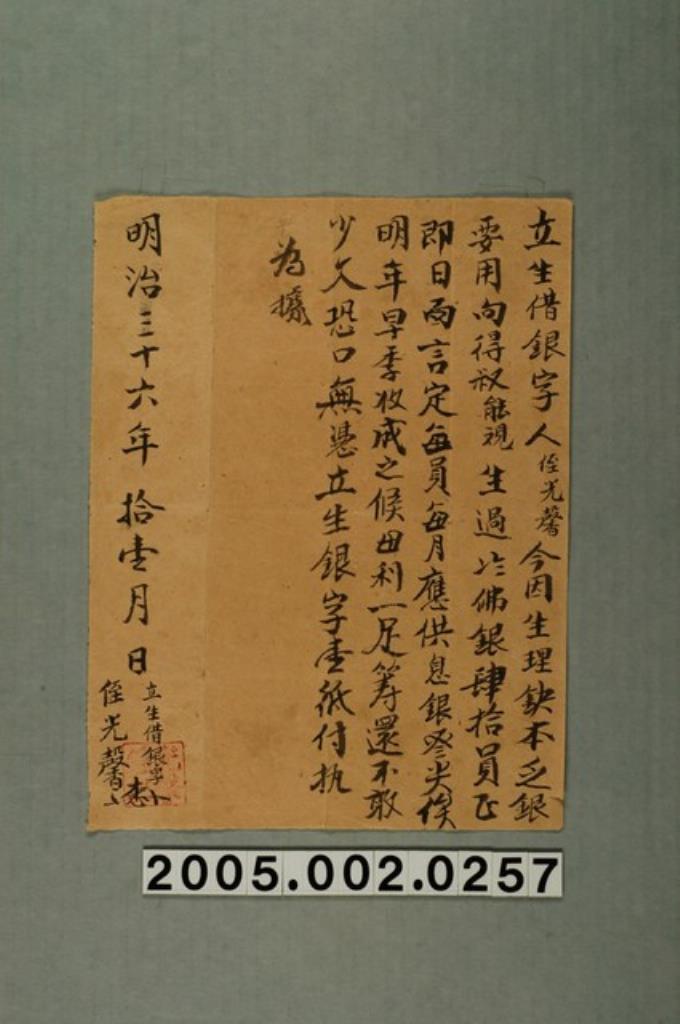 立生借銀字人侄光馨今因生理缺本乏銀
要用向得叔能視生過六八佛銀肆拾員正
即日面言定每員每月應供息銀癸尖俟
明年早季收成之候母利一足籌還不敢
少欠恐口無憑立生銀字壹紙付执
為據
明治三十六年拾壹月日
立生借銀字
侄光馨
2005.002.0257